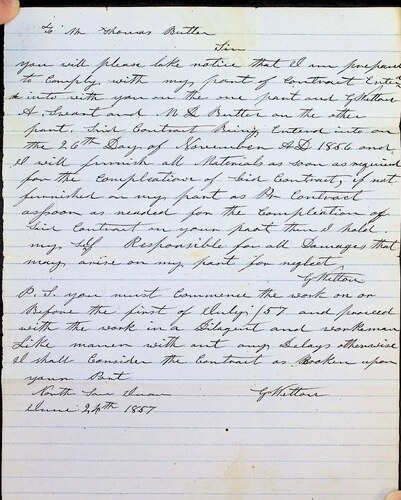 To Mr Thomas Butler
Sir
you will please take notice that I am prepared
to Comply with my part of Contract Enter
d into with you on the one part and G Kettow
A. and N D Butler on the other
part. Said Contract Being Enterd into on
the 26th Day of November AD 1856 and
I will furnish all Materials as soon as required
for the Completion of Said Contract, if not
furnished on my part as Pr Contract
as soon as needed for the Completion of
Said Contract on your part then I hold
my Self Responsible for all Damages that
may arise on my part for neglect
G Kettow
P. S. you must Commence the work on or
Before the first of July /57 and proceed
with the work in a Diligent and workman
Like maner with out any Delays otherwise
I Shall Consider the Contract as Broken upon
your Part
North San Juan
G Kettow
June 24th 1857